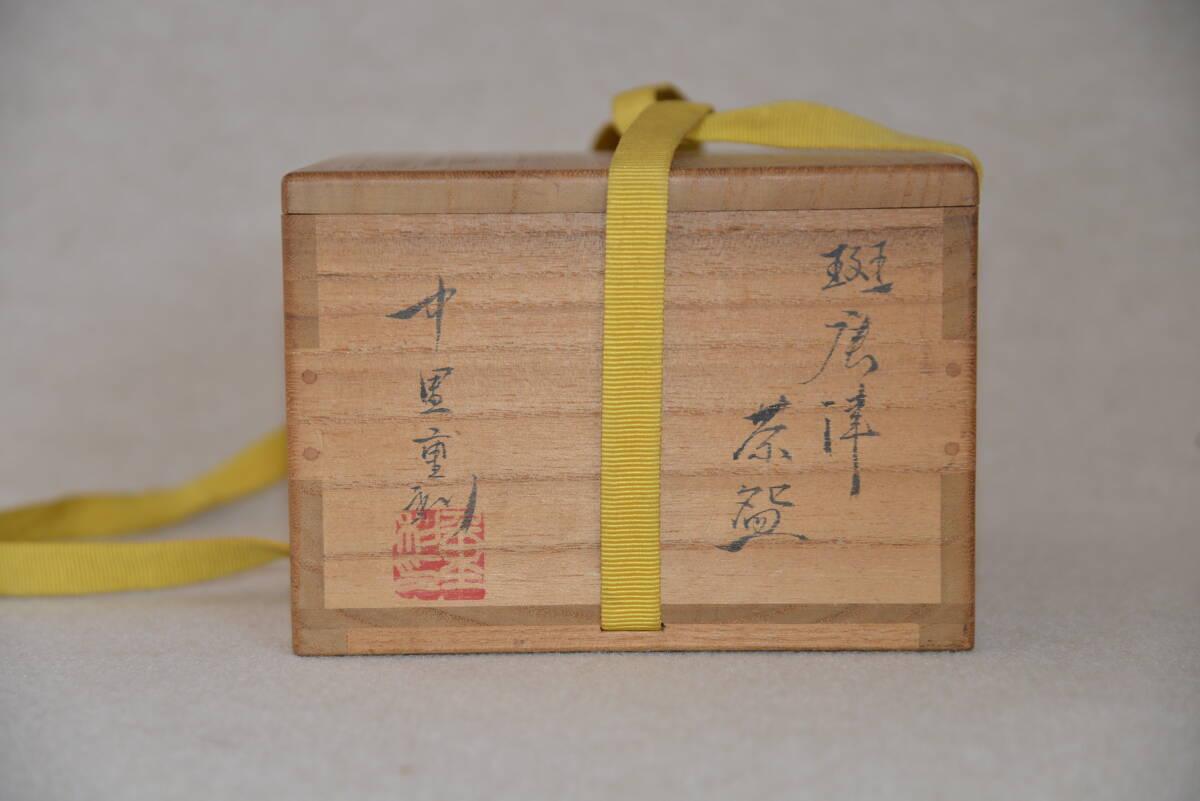 斑唐津
茶盌
中里重利